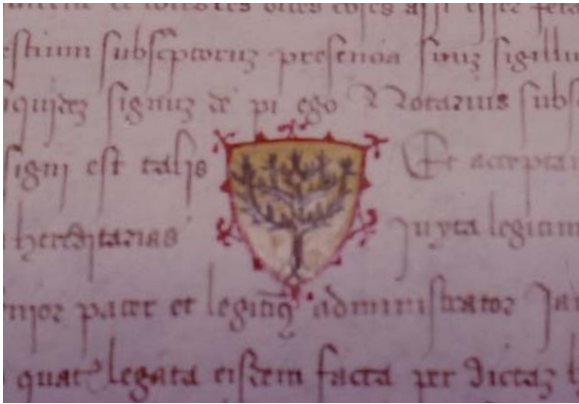 estium subscptoruz presencia suuz sigillu
quidez signuz de pi ego Notarius subs
signi est talis Et accepta
hereditarias Juxta legitim
nior pater et legitiq administrator Ja
quat legata eisdem facta per dictaz